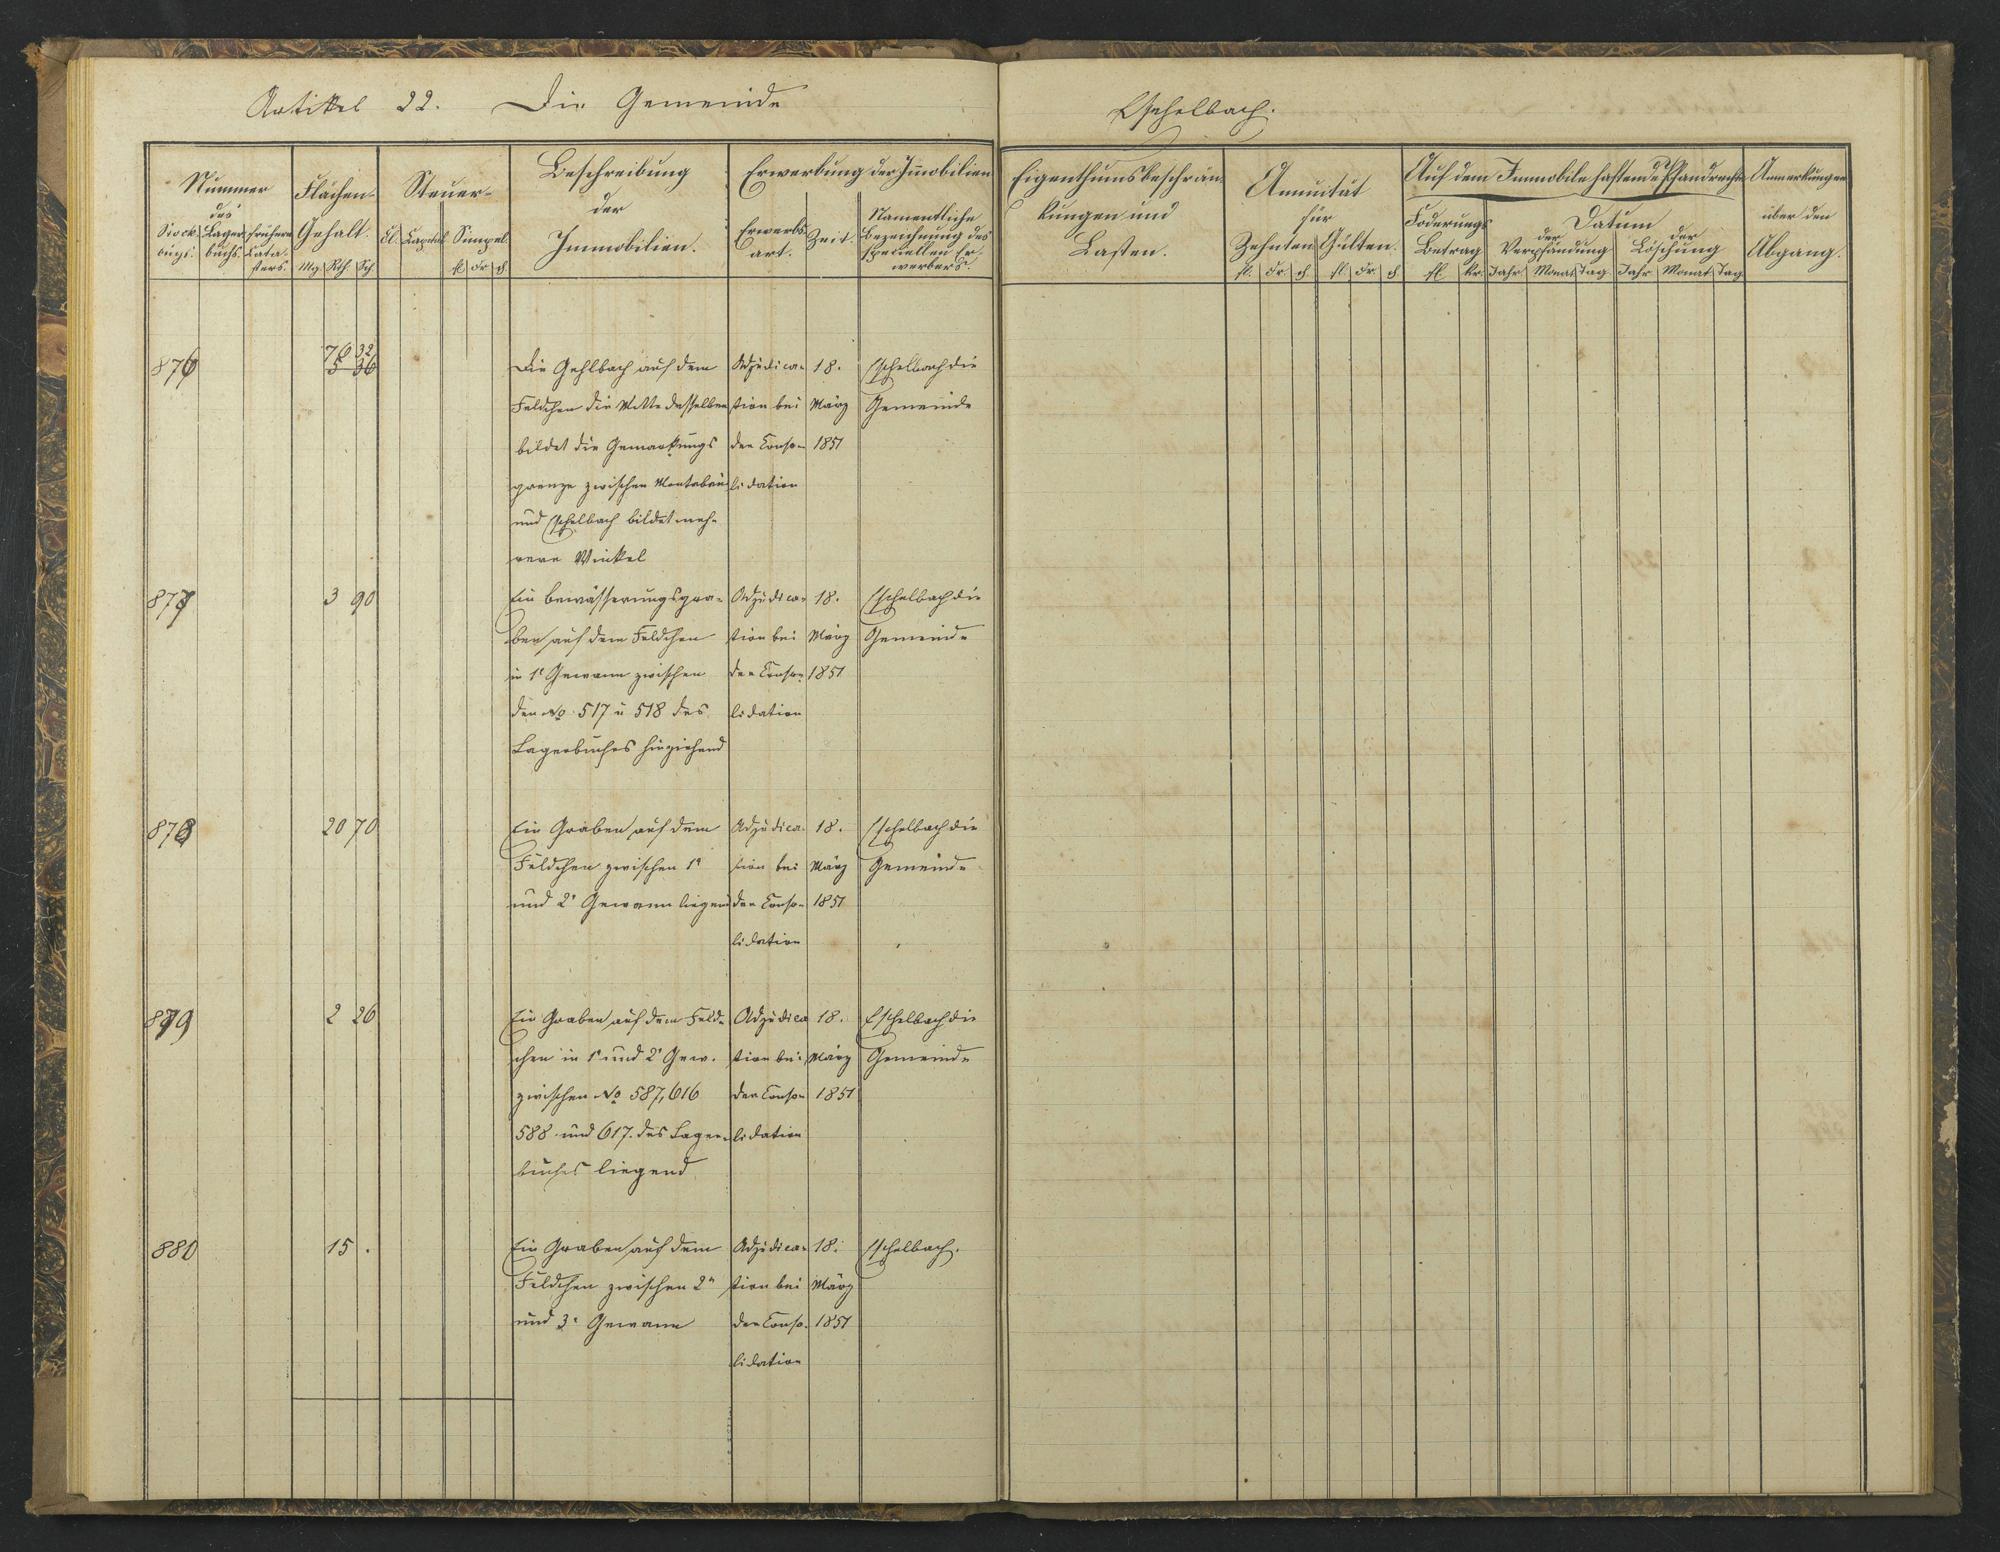 Artikel 22. Die Gemeinde
Eschelbach.
Nummer
des
Stock- Lager- frühere
buchs. buchs. Cata-
sters.
Flächen-
Gehalt.
Mg. Rth. Sch.
Steuer-
Cl. Capital Simpel.
fl. Kr. h.
Beschreibung
der
Immobilien.
Erwerbung der Immobilien
Erwerbs-
art.
Zeit.
Namentliche
Bezeichnung des
speciellen Er-
werbers.
Eigenthumsbeschrän-
kungen und
Lasten.
Annuität
für
Zehnten Gülten.
fl. Kr. h. fl. Kr. h.
Auf dem Immobile haftende Pfandrechte
Foderungs
Betrag
fl. Kr.
Datum
der der
Verpfändung Löschung
Jahr Monat Tag. Jahr Monat Tag
Anmerkungen
über den
Abgang.
876
76 32
5 36
Die Gehlbach auf dem
Feldchen die Mitte desselben
bildet die Gemarkungs
grenze zwischen Montabaur
und Eschelbach bildet meh-
rere Winkel
Adjudica-
tion bei
der Conso-
lidation
18.
März
1851
Eschelbach die
Gemeinde
877
3 90
Ein Bewässerungsgra-
ben auf dem Feldchen
in 1r Gewann zwischen
den No 517 u 518 des
Lagerbuches hinziehend
Adjudica-
tion bei
der Conso-
lidation
18.
März
1851
Eschelbach die
Gemeinde
878
20 70
Ein Graben auf dem
Feldchen zwischen 1r
und 2r Gewann liegend
Adjudica-
tion bei
der Conso-
lidation
18.
März
1851
Eschelbach die
Gemeinde
879
2 26
Ein Graben auf dem Feld-
chen in 1r und 2r Gew.
zwischen No 587, 616
588 und 617. des Lager-
buches liegend
Adjudica
tion bei
der Conso-
lidation
18.
März
1851
Eschelbach die
Gemeinde
880
15 .
Ein Graben auf dem
Feldchen zwischen 2r
und 3r Gewann
Adjudica-
tion bei
der Conso-
lidation
18.
März
1851
Eschelbach.